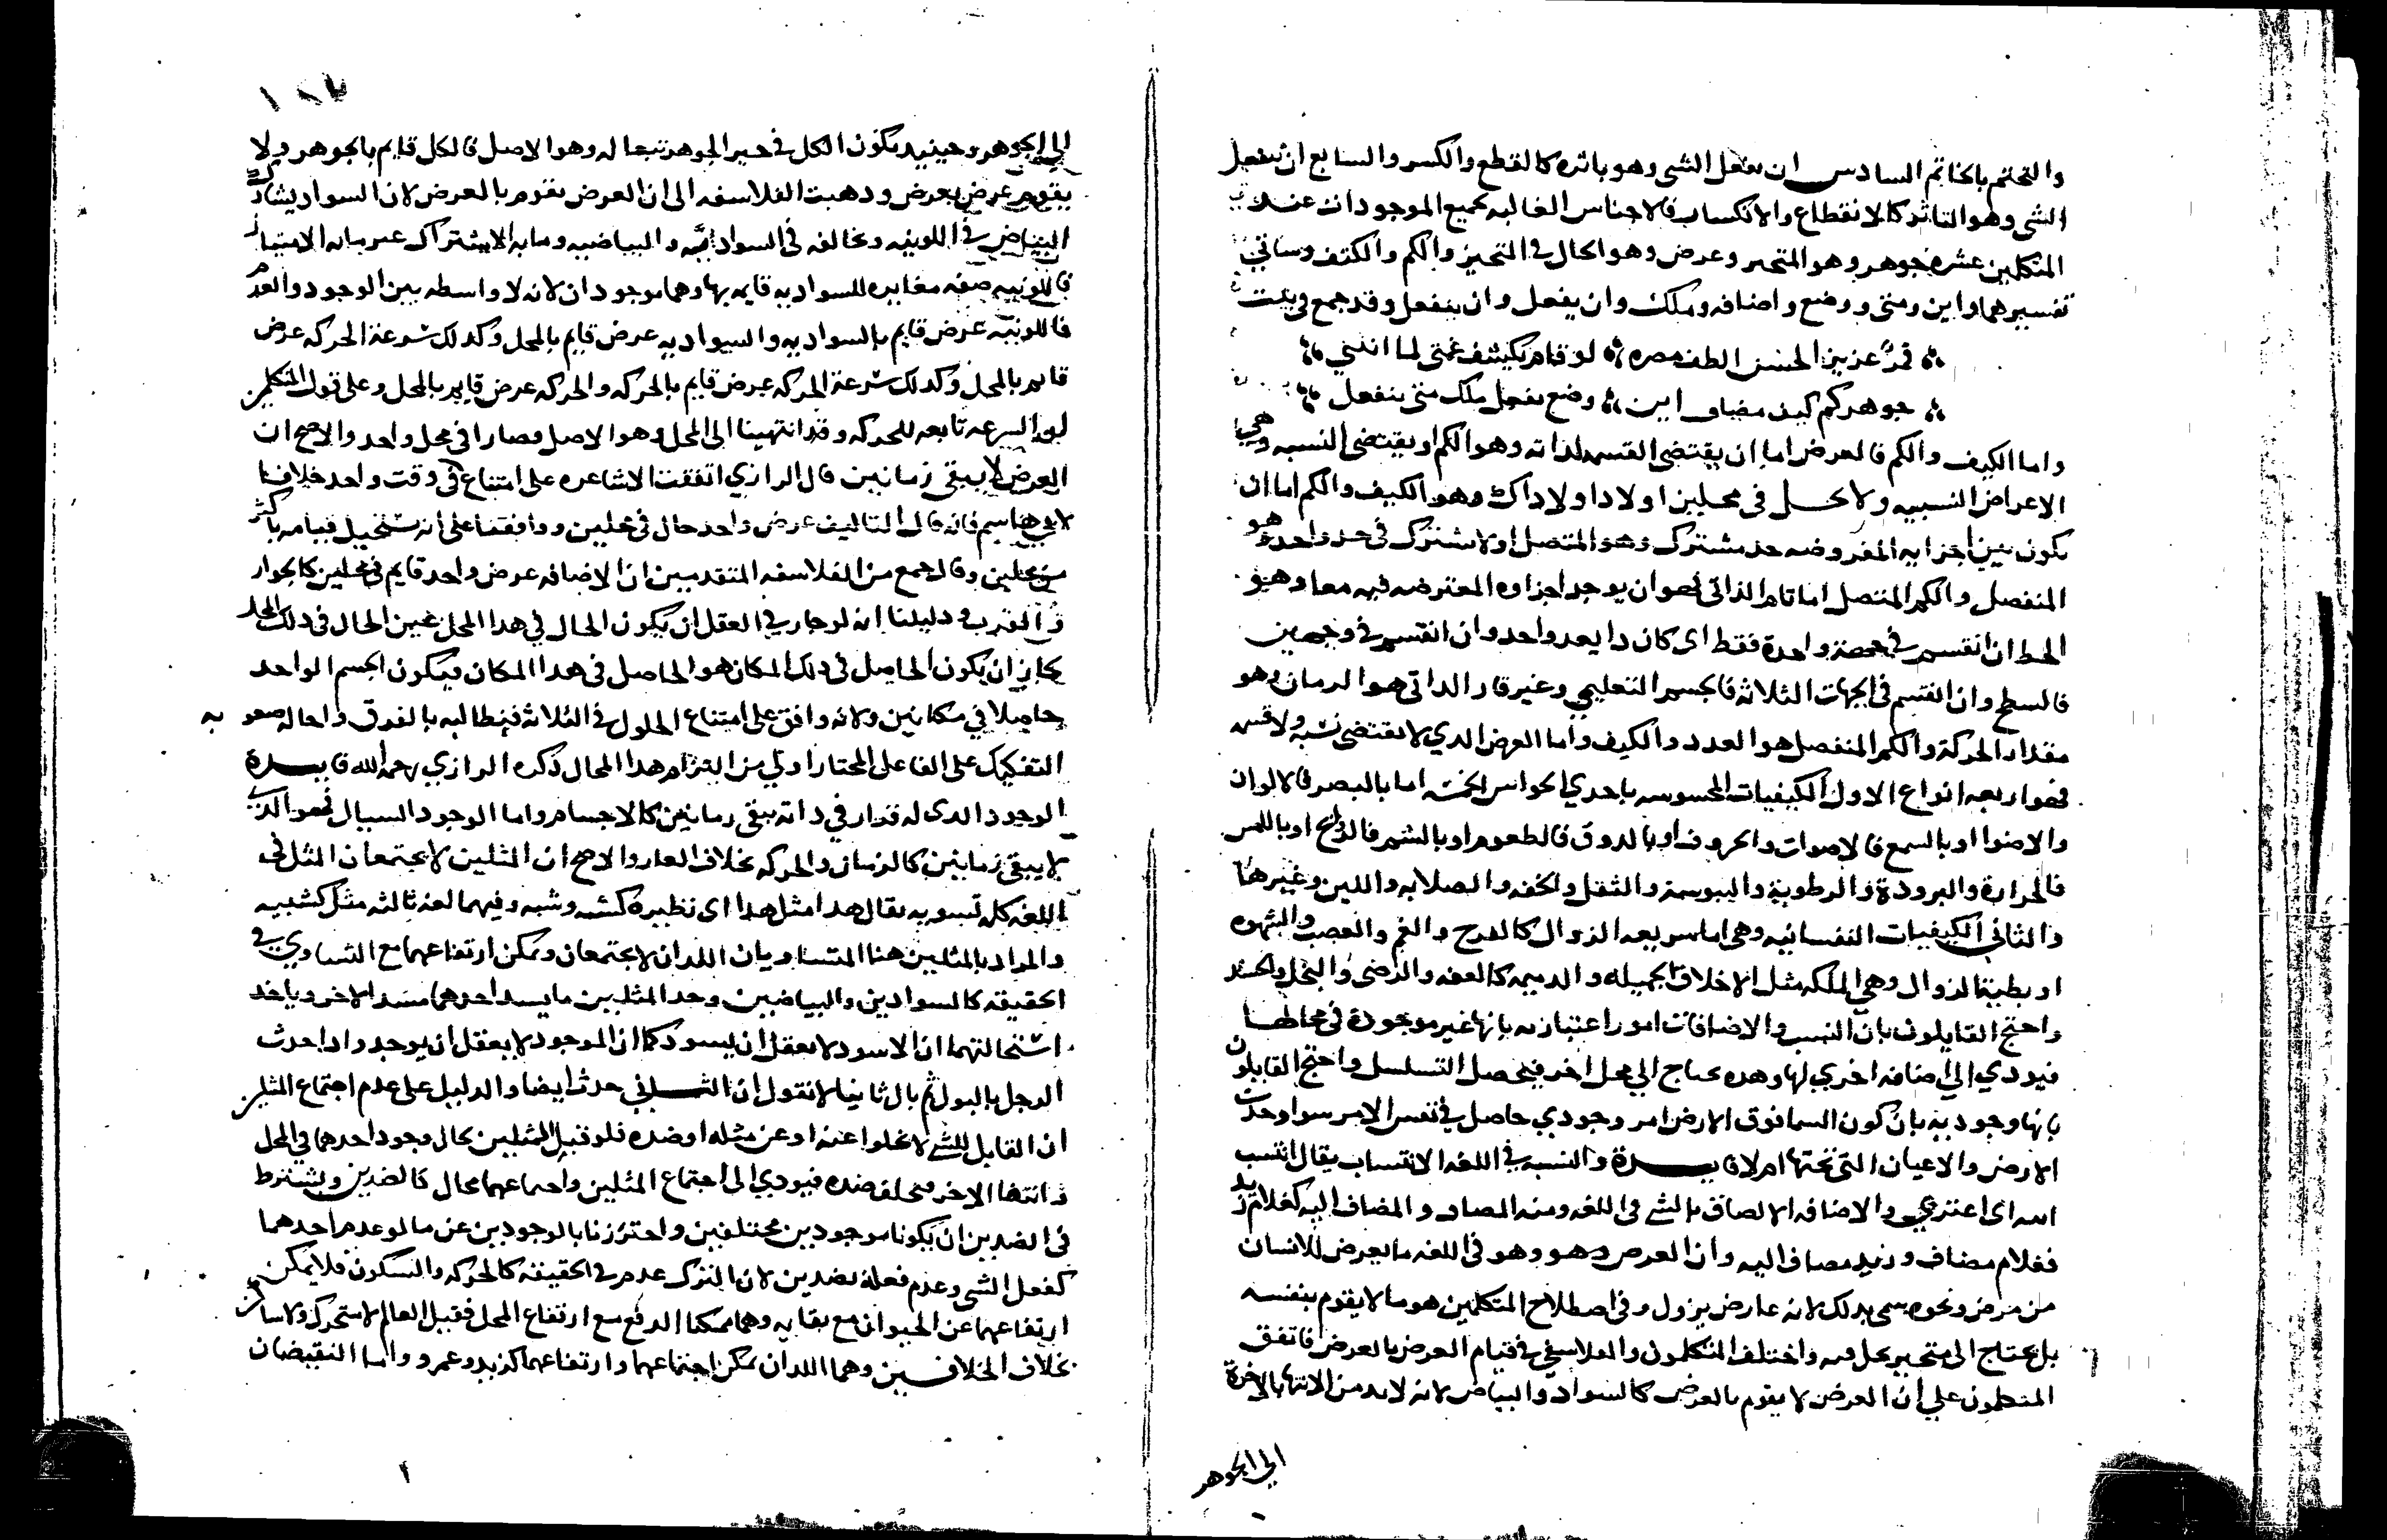 والتختم بالخاتم السادس ان يفعل الشي وهو باثره كالقطع والكسر والسابع ان ينفعل
الشي وهو التاثر كالانقطاع والانكسار فالاجناس العاليه لجميع الموجودات عند
المتكلمين عشره جوهر وهو المتحيز وعرض وهو الحال في المتحيز والكم والكيف وسياتي
تفسيرهما واين ومتى ووضع واضافه وملك وان يفعل وان ينفعل وقد جمع في بيت
قمر عزيز الحسن الطف مصره لو قام يكشف غمتي لما انثني
جوهر كم كيف مضاف اين وضع يفعل ملك متى ينفعل
واما الكيف والكم فالعرض اما ان يقتضي القسمه لذاته وهو الكم او يقتضي النسبه وهي
الاعراض النسبيه ولا يحل في محلين او لا دا ولا داك وهو الكيف والكم اما ان
يكون بين اجزايه المفروضه حد مشترك وهو المتصل او لا يشترك في حد واحد وهو
المنفصل والكم المتصل اما قار الذاتي فهو ان يوجد اجزاوه المفترضه فيه معا وهو
الخط ان انقسم في جهة واحدة فقط اي كان دا بعد واحد وان انقسم في وجهين
فالسطح وان انقسم في الجهات الثلاثه فالجسم التعليمي وغير قار الداتي هو الزمان وهو
مقدار الحركة والكم المنفصل هو العدد والكيف واما العرض الدي لا يقتضي نسبه ولا قسمه
فهو اربعه انواع الاول الكيفيات المحسوسه باحدي الحواس الخمسه اما بالبصر فالالوان
والاضوا او بالسمع فالاصوات والحروف او بالدوق فالطعوم او بالشم فالروايح او باللمس
فالحرارة والبرودة والرطوبة واليبوسة والثقل والخفه والصلابه واللين وغيرها
والثاني الكيفيات النفسانيه وهي اما سريعه الزوال كالفرح والغم والغضب والشهوه
او بطية الزوال وهي الملكه مثل الاخلاق الجميله والدميمه كالعفه والرضى والبخل والحسد
واحتج القايلون بان النسب والاضافات امور اعتباريه بانها غير موجودة في محالها
فيودي الي اضافه اخري لها وهده يحتاج الي محل اخر فيحصل التسلسل واحتج القايلون
بانها وجوديه بان كون السما فوق الارض امر وجودي حاصل في نفس الامر سوا وجدت
الارض والاعيان التي تحتها ام لا فايدة والنسبه في اللغه الانتساب يقال انتسب
اليه اي اعتزي والاضافه الالصاق بالشي في اللغه ومنه المضاف والمضاف اليه كغلام زيد
فغلام مضاف وزيد مضاف اليه وان العرض وهو وهو في اللغه ما يعرض للانسان
من مرض ونحوه سمي بدلك لانه عارض يزول وفي اصطلاح المتكلمين هو ما لا يقوم بنفسه
بل يحتاج الى متحيز يحل فيه واختلف المتكلمون والفلاسفه في قيام العرض بالعرض فاتفق
المتكلمون علي ان العرض لا يقوم بالعرض كالسواد والبياض لانه لا بد من الانتها بالاخرة
الي الجوهر
الي الجوهر وحينيد يكون الكل في حيز الجوهر تبعا له وهو الاصل فالكل قايم بالجوهر ولا
يقوم عرض بعرض ودهبت الفلاسفه الى ان العرض يقوم بالعرض لان السواد يشارك
البياض في اللونيه ويخالفه في السواديه والبياضيه وما به الاشتراك غير ما به الامتياز
فاللونيه صفه مغايره للسواديه قايمه بها وهما موجودان لانه لا واسطه بين الوجود والعدم
فاللونيه عرض قايم بالسواديه والسواديه عرض قايم بالمحل وكدلك سرعة الحركه عرض
قايم بالمحل وكدلك سرعة الحركه عرض قايم بالحركه والحركه عرض قايم بالمحل وعلى قول المتكلمين
السرعه تابعه للحركه وقد انتهينا الى المحل وهو الاصل فصارا في محل واحد والاصح ان
العرض لا يبقى زمانين قال الرازي اتفقت الاشاعره على امتناع في وقت واحد خلافا
لابي هاشم فانه قال التاليف عرض واحد حال في محلين ووافقنا على انه يستحيل قيامه باكثر
من محلين وقال جمع من الفلاسفه المتقدمين ان الاضافه عرض واحد قايم في محلين كالجوار
والقرب دليلنا انه لو جاز في العقل ان يكون الحال في هدا المحل عين الحال في دلك المحل
لجاز ان يكون الحاصل في دلك المكان هو الحاصل في هدا المكان فيكون الجسم الواحد
حاصلا في مكانين ولانه وافق على امتناع الحلول في الثلاثة فنطالبه بالفرق واحاله صعوبه
التفكيك على الفاعل المختار اولي من التزام هدا المحال دكره الرازي رحمه الله فايدة
الوجود الدى له قرار في داته يبقي زمانين كالاجسام واما الوجود السيال فهو الدي
لا يبقى زمانين كالزمان والحركه بخلاف القار والاصح ان المثلين لا يجتمعان المثل في
اللغه كله تسويه يقال هدا مثل هدا اي نظيره كشبه وشبه وفيهما لغه ثالثه مثل كشبيه
والمراد بالمثلين هنا المتساويان اللدان لا يجتمعان ويمكن ارتفاعهما مع التساوي في
الحقيقه كالسوادين والبياضين وحد المثلين ما يسد احدهما مسد الاخر وياخد
استحالتهما ان الاسود لا يعقل ان يسود كما ان الموجود لا يعقل ان يوجد وادا حدث
الرجل بالبول ثم بال ثانيا لا نقول ان الثاني حدث ايضا والدليل على عدم اجتماع المثلين
ان القابل للشي لا يخلوا عنه او عن مثله او ضده فلو قبل المثلين لحال وجود احدهما في المحل
وانتفا الاخر فيخلفه ضده فيودي الى اجتماع المثلين واجتماعهما محال كالضدين ويشترط
في الضدين ان يكونا موجودين مختلفين واحترزنا بالوجودين عن ما لو عدم احدهما
كفعل الشي وعدم فعله بضدين لان الترك عدم في الحقيقه كالحركه والسكون فلا يمكن
ارتفاعهما عن الحيوان مع بقايه وهما ممكنا الرفع مع ارتفاع المحل فقبل العالم لا متحرك ولا ساكن
بخلاف الخلافين وهما اللدان يمكن اجتماعهما وارتفاعهما كزيد وعمرو واما النقيضان